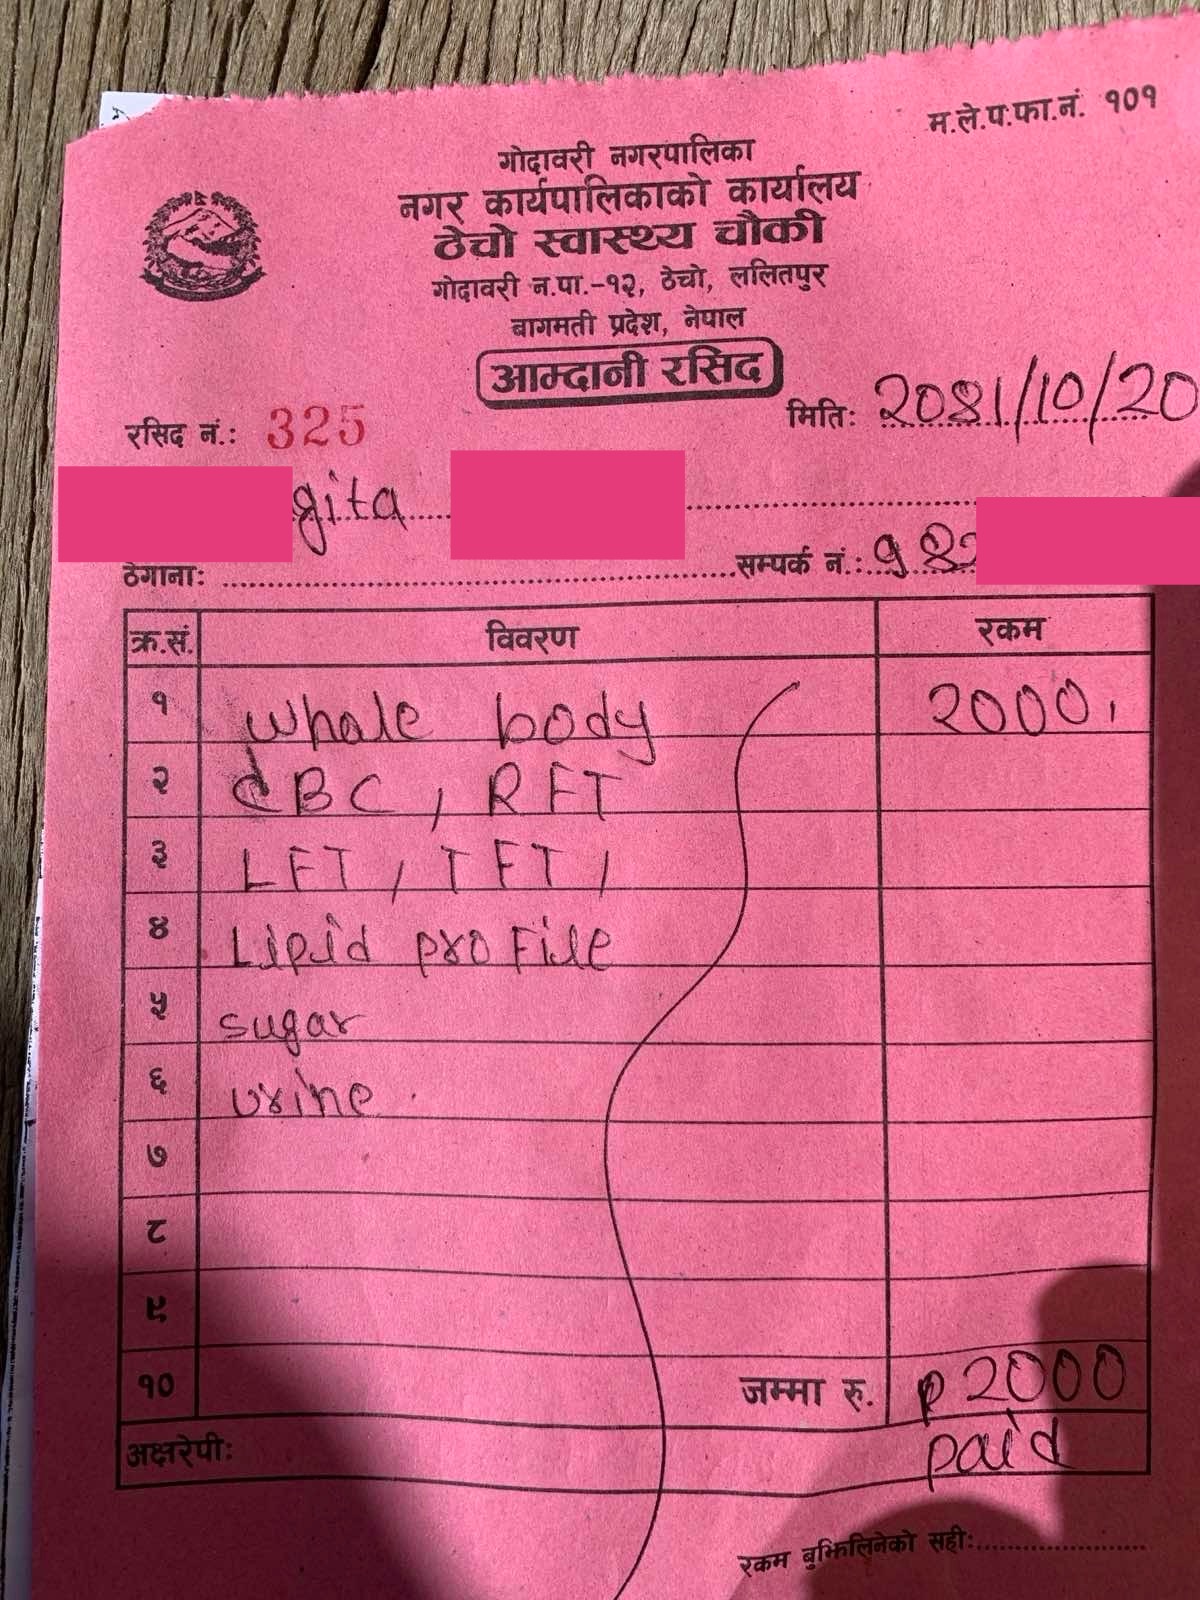 म.ले.प.फा.नं. १०१
गोदावरी नगरपालिका
नगर कार्यपालिकाको कार्यालय
ठेचो स्वास्थ्य चौकी
गोदावरी न.पा.-१२, ठेचो, ललितपुर
बागमती प्रदेश, नेपाल
आम्दानी रसिद
रसिद नं.: 325 मिति: 2081/10/20
gita
ठेगाना: सम्पर्क नं.: 982
क्र.सं. विवरण रकम
१ Whole body 2000,
२ CBC, RFT
३ LFT, TFT,
४ Lipid proFile
५ sugar
६ urine
७
८
९
१० जम्मा रु. 2000
अक्षरेपी: paid
रकम बुझिलिनेको सही: